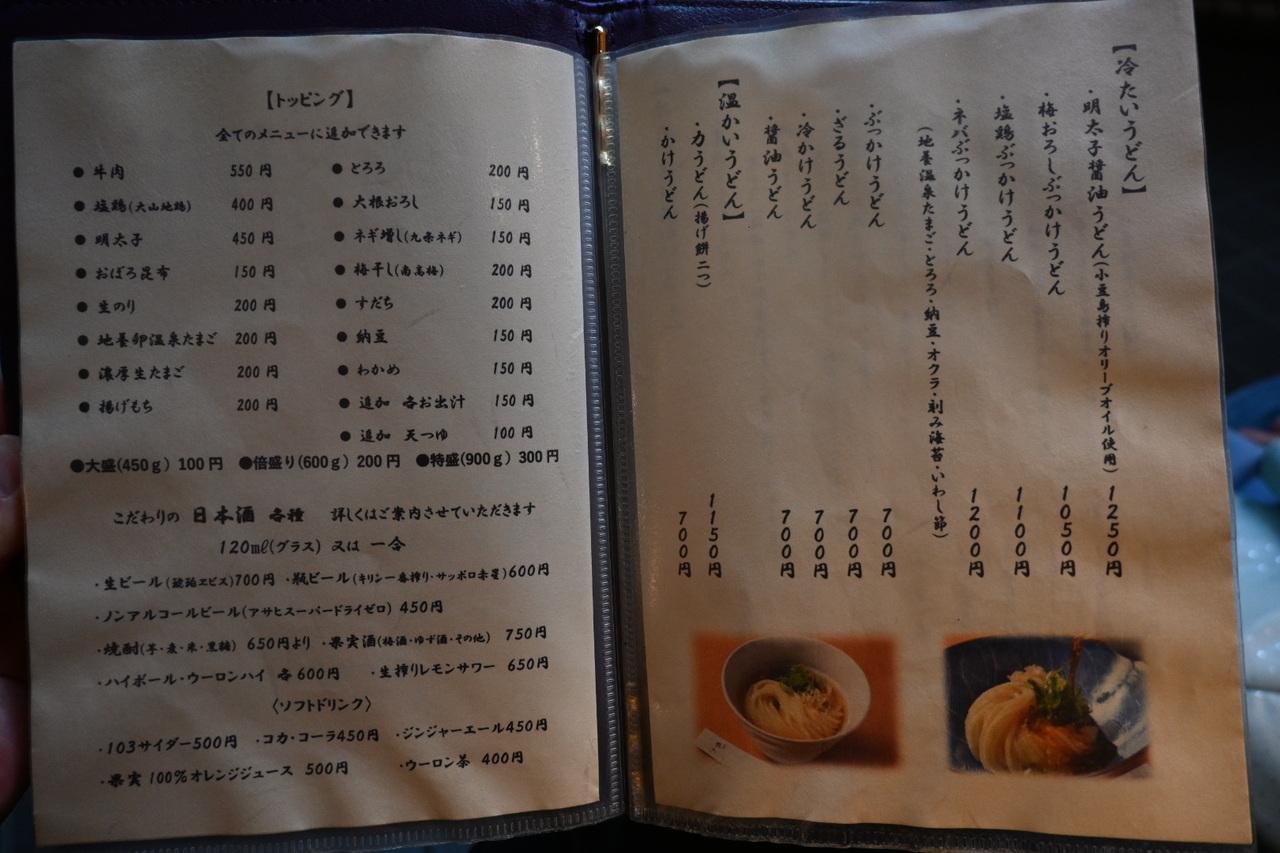 【トッピング】
全てのメニューに追加できます
● 牛肉 550円
● 塩鶏(大山地鶏) 400円
● 明太子 450円
● おぼろ昆布 150円
● 生のり 200円
● 地養卵温泉たまご 200円
● 濃厚生たまご 200円
● 揚げもち 200円
● とろろ 200円
●大根おろし 150円
● ネギ増し(九条ネギ) 150円
● 梅干し(南高梅) 200円
● すだち 200円
● 納豆 150円
● わかめ 150円
● 追加 各お出汁 150円
● 追加 天つゆ 100円
●大盛(450g) 100円 ●倍盛り(600g) 200円 ●特盛(900g) 300円
こだわりの 日本酒 各種 詳しくはご案内させていただきます
120㎖(グラス) 又は 一合
・生ビール(琥珀ヱビス)700円 ・瓶ビール(キリン一番搾り・サッポロ赤星)600円
・ノンアルコールビール(アサヒスーパードライゼロ) 450円
・焼酎(芋・麦・米・黒糖) 650円より ・果実酒(梅酒・ゆず酒・その他) 750円
・ハイボール・ウーロンハイ 各600円 ・生搾りレモンサワー 650円
〈ソフトドリンク〉
・103サイダー500円 ・コカ・コーラ450円 ・ジンジャーエール450円
・果実100%オレンジジュース 500円 ・ウーロン茶 400円
【冷たいうどん】
・明太子醤油うどん(小豆島搾りオリーブオイル使用) 1250円
・梅おろしぶっかけうどん 1050円
・塩鶏ぶっかけうどん 1100円
・ネバぶっかけうどん 1200円
(地養温泉たまご・とろろ・納豆・オクラ・刻み海苔・いわし節)
・ぶっかけうどん 700円
・ざるうどん 700円
・冷かけうどん 700円
・醤油うどん 700円
【温かいうどん】
・力うどん(揚げ餅二つ) 1150円
・かけうどん 700円